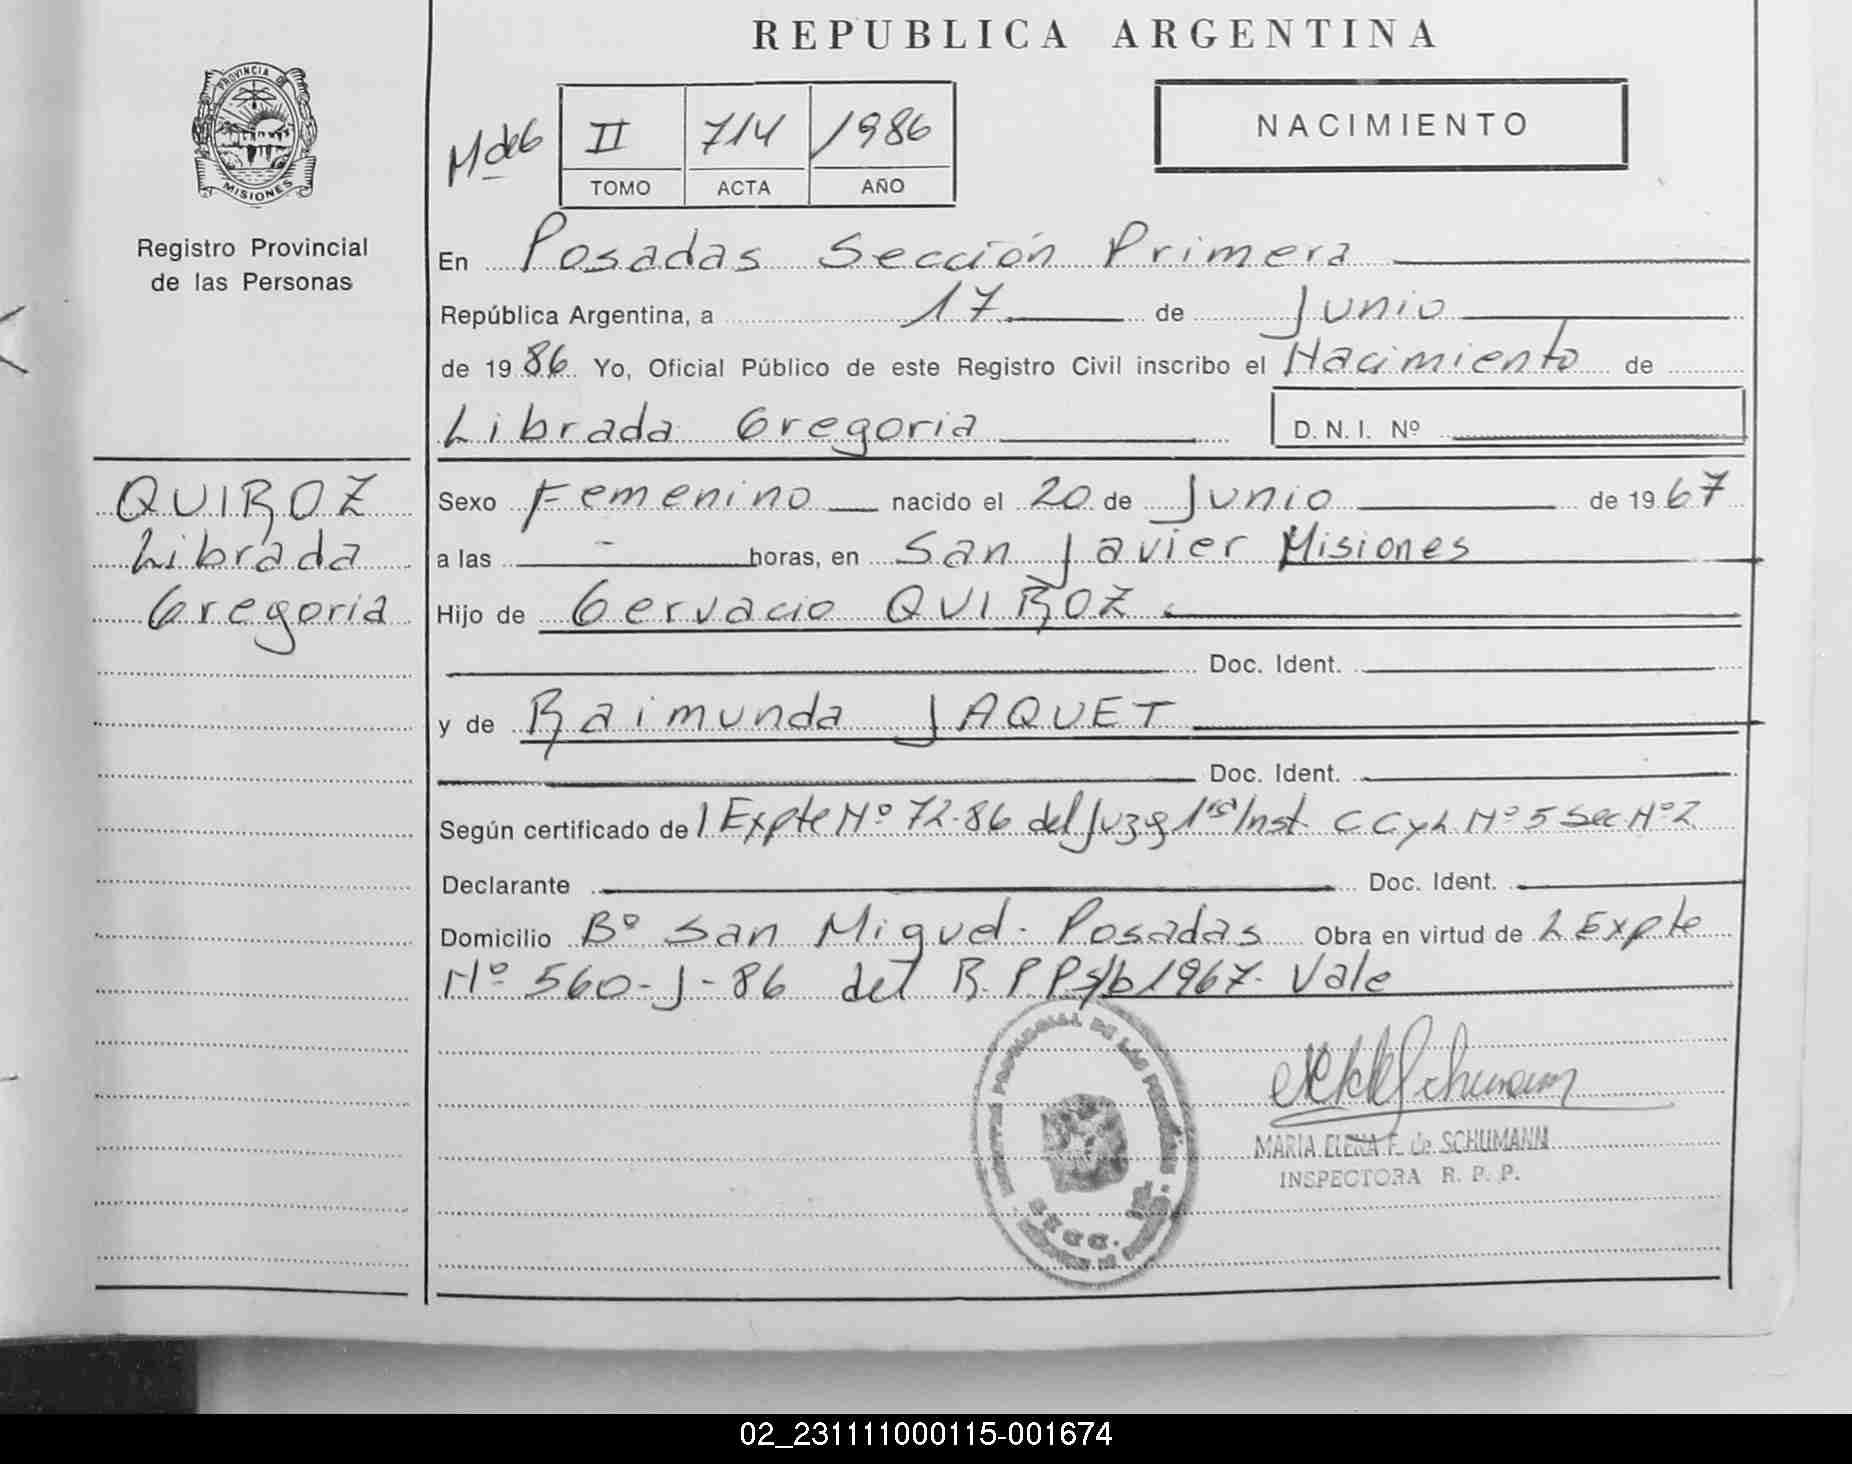 REPUBLICA ARGENTINA
PROVINCIA DE
MISIONES
Registro Provincial
de las Personas
M de 6
II 714 1986
TOMO ACTA AÑO
NACIMIENTO
En Posadas Sección Primera
República Argentina, a 17 de Junio
de 1986 Yo, Oficial Público de este Registro Civil inscribo el Nacimiento de
Librada Gregoria D.N.I. Nº
QUIROZ
Librada
Gregoria
Sexo Femenino nacido el 20 de Junio de 1967
a las - horas, en San Javier Misiones
Hijo de Gervacio QUIROZ
Doc. Ident.
y de Raimunda JAQUET
Doc. Ident.
Según certificado del Expte Nº 72-86 del Juzg 1ra Inst C C y L Nº 5 Sec Nº 2
Declarante Doc. Ident.
Domicilio Bº San Miguel - Posadas Obra en virtud de L Expte
Nº 560-J-86 del R.P.P s/b 1967- Vale
PROVINCIAL DE LAS PERSONAS
MARIA ELENA F. de SCHUMANN
INSPECTORA R. P. P.
02_231111000115-001674